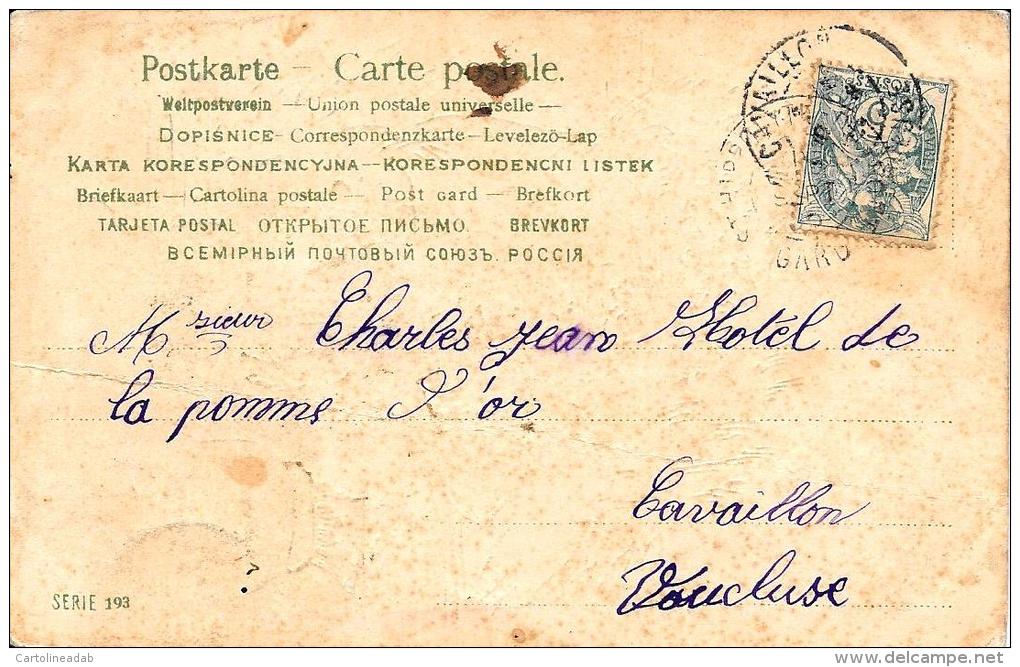 Postkarte – Carte postale.
Weltpostverein — Union postale universelle —
DOPISNICE – Correspondenzkarte – Levelező-Lap
KARTA KORESPONDENCYJNA — KORESPONDENCNI LISTEK
Briefkaart — Cartolina postale — Post card — Brefkort
TARJETA POSTAL ОТКРЫТОЕ ПИСЬМО. BREVKORT
ВСЕМІРНЫЙ ПОЧТОВЫЙ СОЮЗЪ. РОССІЯ
GARD
Msieur Charles Jean Hotel de
la pomme d'or
Cavaillon
Vaucluse
SERIE 193
Cartolineadab
www.delcampe.net